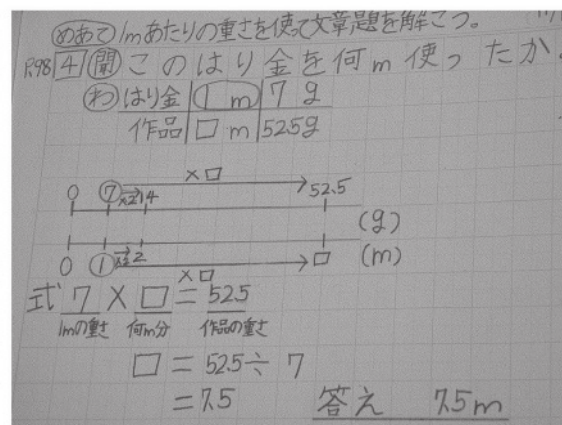 めあて 1mあたりの重さを使って文章題を解こう。
P.98 4 問 このはり金を何m使ったか.
わ はり金 1 m 7 g
作品 □ m 52.5g
×□
0 7 ×2 14 52.5
(g)
0 1 ×2 2 □ (m)
×□
式 7 × □ = 52.5
1mの重さ 何m分 作品の重さ
□ = 52.5 ÷ 7
= 7.5 答え 7.5m